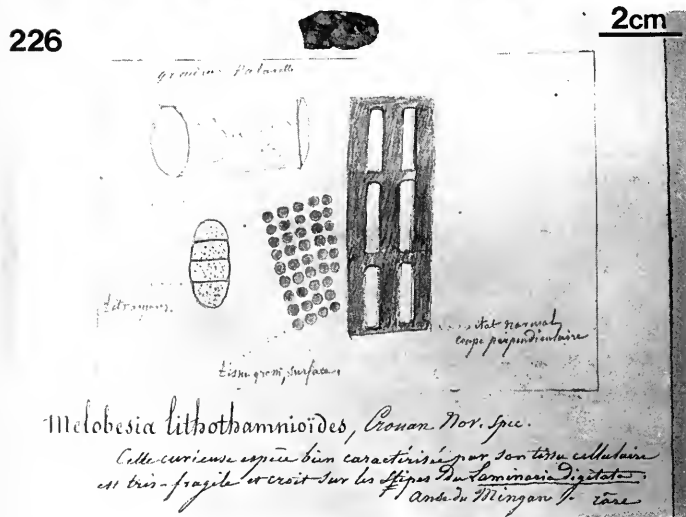 226
2cm
tétraspore
tissu grossi, surface.
état normal
coupe perpendiculaire
Melobesia lithothamnioïdes, Crouan Nov. Spec.
Cette curieuse espèce bien caractérisée par son tissu cellulaire
est très-fragile et croit sur les stipes du Laminaria digitata.
anse du Mingan /. rare